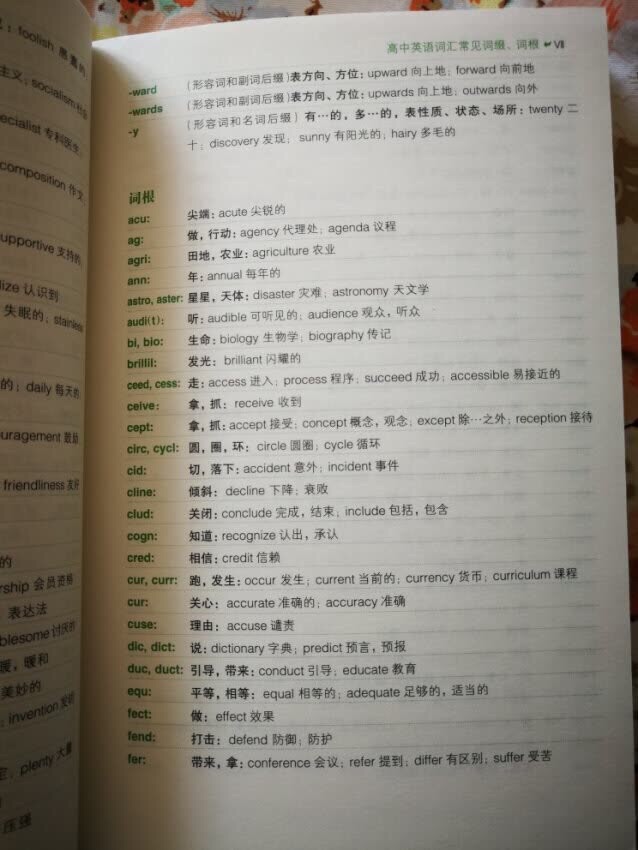 : foolish 愚蠢的
主义; socialism 社会
ecialist 专科医生;
composition 作文;
supportive 支持的
lize 认识到
失眠的; stainless
的; daily 每天的
ouragement 鼓励
friendliness 友好
的
rship 会员资格
表达法
blesome 讨厌的
暖, 暖和
美妙的
; invention 发明
定; plenty 大量
压强
高中英语词汇常见词缀、词根 VII
-ward (形容词和副词后缀) 表方向、方位: upward 向上地; forward 向前地
-wards (形容词和副词后缀) 表方向、方位: upwards 向上地; outwards 向外
-y (形容词和名词后缀) 有…的, 多…的, 表性质、状态、场所: twenty 二
十; discovery 发现; sunny 有阳光的; hairy 多毛的
词根
acu: 尖端: acute 尖锐的
ag: 做, 行动: agency 代理处; agenda 议程
agri: 田地, 农业: agriculture 农业
ann: 年: annual 每年的
astro, aster: 星星, 天体: disaster 灾难; astronomy 天文学
audi(t): 听: audible 可听见的; audience 观众, 听众
bi, bio: 生命: biology 生物学; biography 传记
brillil: 发光: brilliant 闪耀的
ceed, cess: 走: access 进入; process 程序; succeed 成功; accessible 易接近的
ceive: 拿, 抓: receive 收到
cept: 拿, 抓: accept 接受; concept 概念, 观念; except 除…之外; reception 接待
circ, cycl: 圆, 圈, 环: circle 圆圈; cycle 循环
cid: 切, 落下: accident 意外; incident 事件
cline: 倾斜: decline 下降; 衰败
clud: 关闭: conclude 完成, 结束; include 包括, 包含
cogn: 知道: recognize 认出, 承认
cred: 相信: credit 信赖
cur, curr: 跑, 发生: occur 发生; current 当前的; currency 货币; curriculum 课程
cur: 关心: accurate 准确的; accuracy 准确
cuse: 理由: accuse 谴责
dic, dict: 说: dictionary 字典; predict 预言, 预报
duc, duct: 引导, 带来: conduct 引导; educate 教育
equ: 平等, 相等: equal 相等的; adequate 足够的, 适当的
fect: 做: effect 效果
fend: 打击: defend 防御; 防护
fer: 带来, 拿: conference 会议; refer 提到; differ 有区别; suffer 受苦